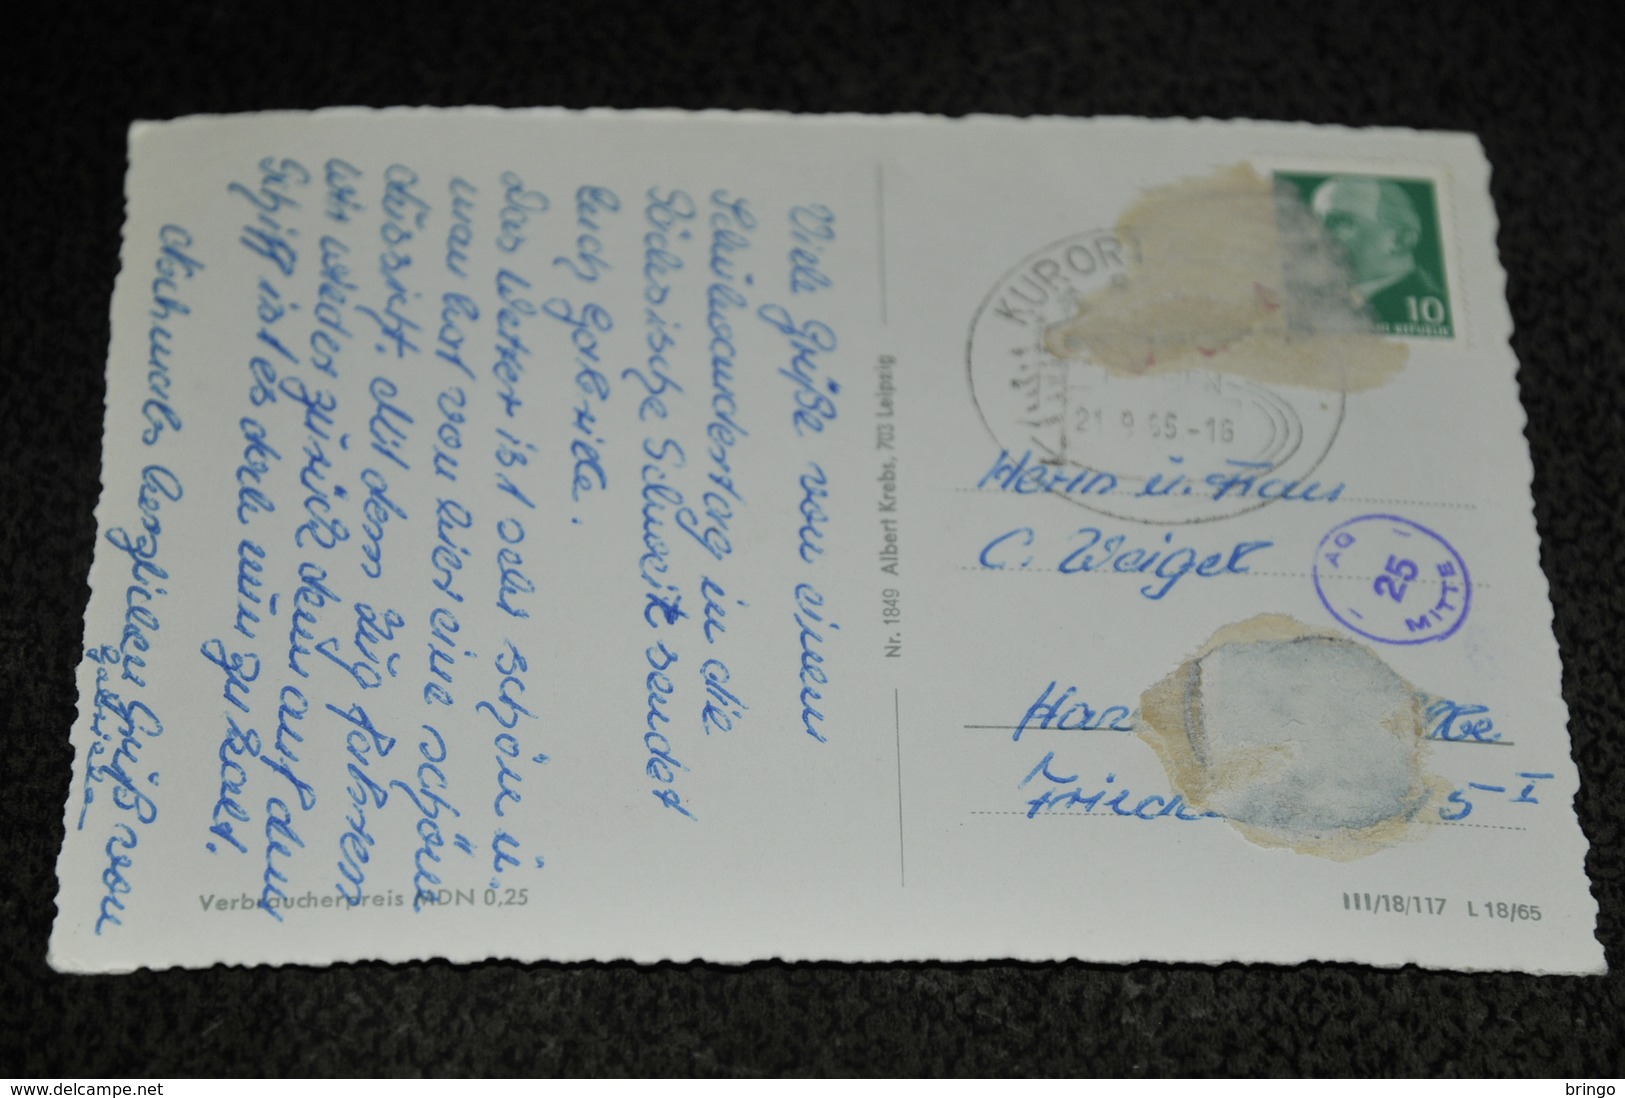 Viele Grüße von einem
Schulwandertag in die
Sächsische Schweiz sendet
Euch Gabriele.
Das Wetter ist sehr schön u.
man hat von hier eine schöne
Aussicht. Mit dem Zug fahren
wir wieder zurück denn auf dem
Schiff ist es doch nun zu kalt.
Nochmals herzlichen Gruß von
Gabriele
Verbraucherpreis MDN 0,25
Nr. 1849 Albert Krebs, 703 Leipzig
KUROR
21 9 65-16
10
Herrn u. Frau
C. Weigel
AG
25
MITTE
III/18/117 L 18/65
delcampe.net
bringo